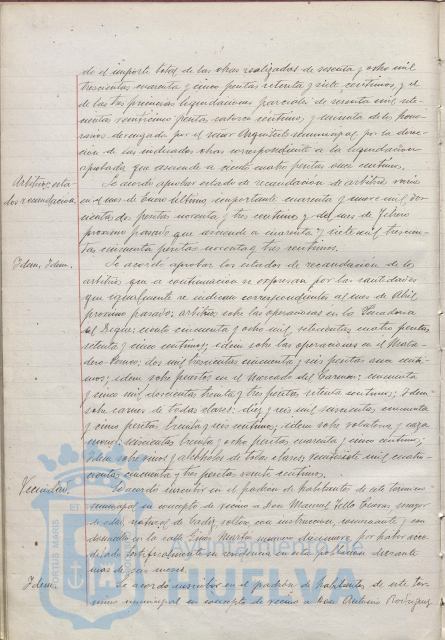 do el importe total de las obras realizadas de sesenta y ocho mil
trescientas cuarenta y cinco pesetas setenta y siete centimos, y el
de las tres primeras liquidaciones parciales de sesenta mil sete-
cientas veinticinco pesetas catorce centimos; y cuenta de los hono-
rarios devengados por el señor Arquitecto municipal por la direc-
ción de las indicadas obras correspondiente a la liquidacion
aprobada que asciende a ciento cuatro pesetas once centimos.
Arbitrios esta-
dos recaudacion.
Se acordó aprobar estado de recaudación de arbitrios
en el mes de Enero último, importante cuarenta y nueve mil dos
cientas pesetas noventa y tres centimos y del mes de febrero
proximo pasado que asciende a cuarenta y siete mil trescien-
tas cincuenta pesetas noventa y tres centimos.
Idem, Idem.
Se acordó aprobar los estados de recaudación de los
arbitrios que a continuación se expresan por las cantidades
que igualmente se indican correspondientes al mes de Abril
proximo pasado: arbitrio sobre las operaciones en la Pescadería
del Dique: ciento cincuenta y ocho mil setecientas cuatro pesetas
setenta y cinco centimos; idem sobre las operaciones en el Mata-
dero Publico: dos mil trescientas cincuenta y seis pesetas once centi-
mos; idem sobre puestos en el Mercado del Carmen: cincuenta
y cinco mil doscientas treinta y tres pesetas setenta centimos; Idem
sobre carnes de todas clases: diez y seis mil cincuenta
y cinco pesetas treinta y seis centimos; idem sobre volateria y caza
menor: seiscientas treinta y ocho pesetas cuarenta y cinco centimos;
Idem sobre vinos y alcoholes de todas clases: veintisiete mil cuatro-
cientas cincuenta y tres pesetas veinte centimos.
Vecindad.
Se acordó inscribir en el padrón de habitantes de este termino
municipal en concepto de vecino a don Manuel Tello mayor
de edad, natural de Cadiz, soltero, con instrucción, comerciante y con
domicilio en la calle numero diecinueve, por haber acre-
ditado su residencia en esta población durante
mas de seis meses.
Idem.
Se acordó inscribir en el padrón de habitantes de este ter-
mino municipal en concepto de vecino a don Antonio Rodriguez
PORTUS MARIS ET
Ayuntamiento de
HUELVA